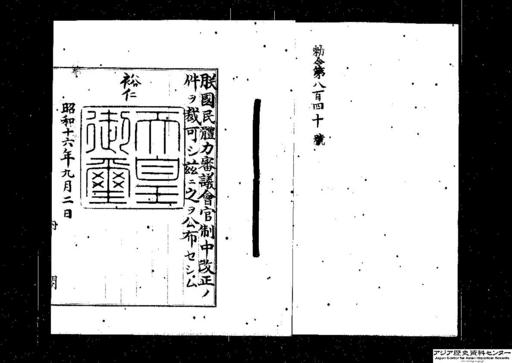 勅令第八百四十號
朕國民體力審議會官制中改正ノ
件ヲ裁可シ茲ニ之ヲ公布セシム
裕仁
天皇
御璽
昭和十六年九月二日
内閣
アジア歴史資料センター
Japan Center for Asian Historical Records